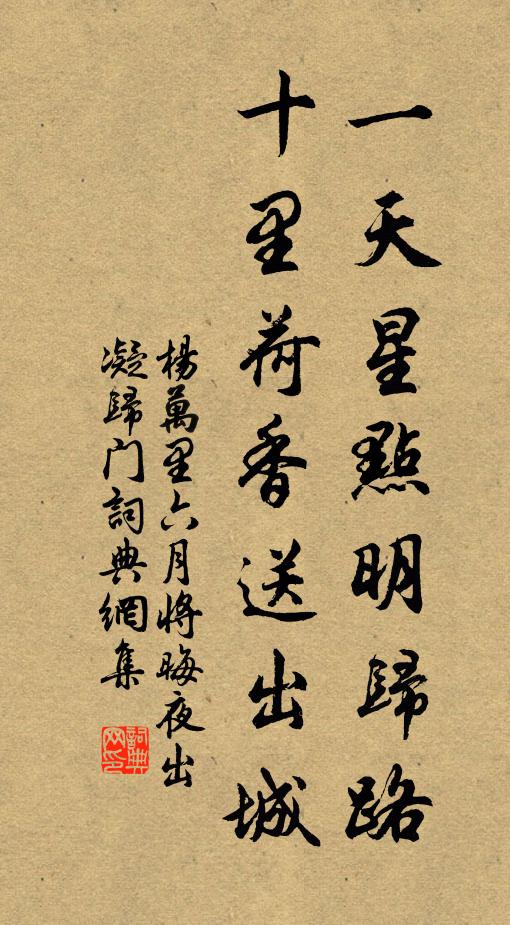 一天星點明歸路
十里荷香送出城
楊萬里六月將晦夜出
凝歸门詞典網集
詞典网印